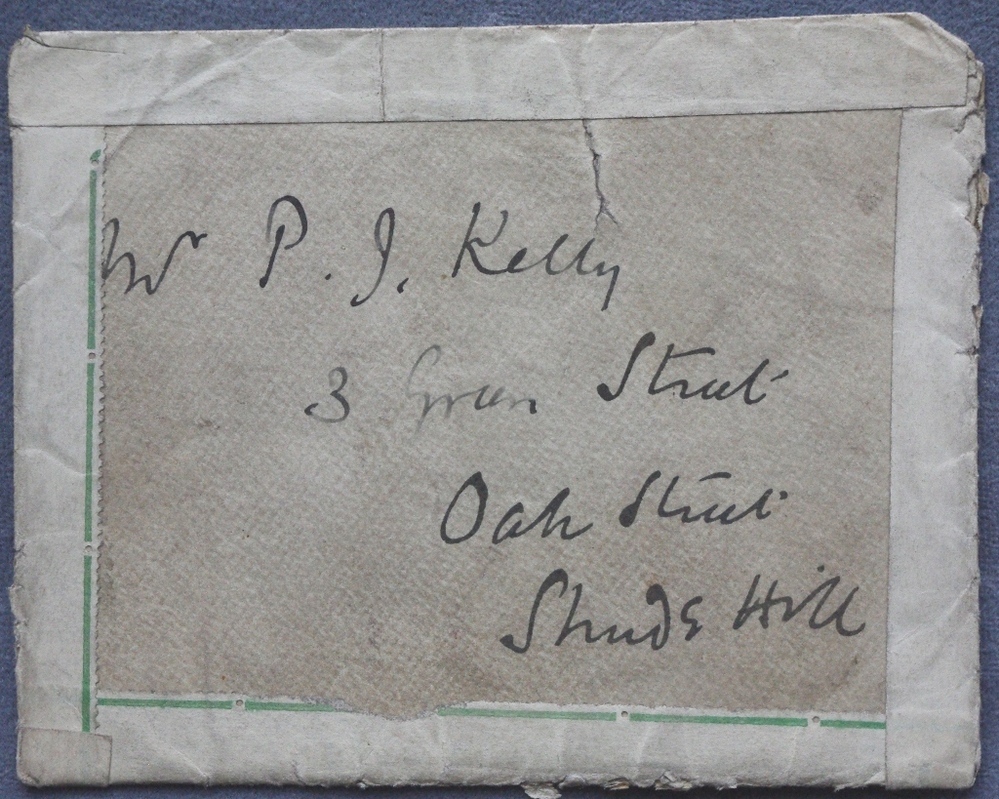 Mr P. J. Kelly
3 Green Street
Oak Street
Shude Hill